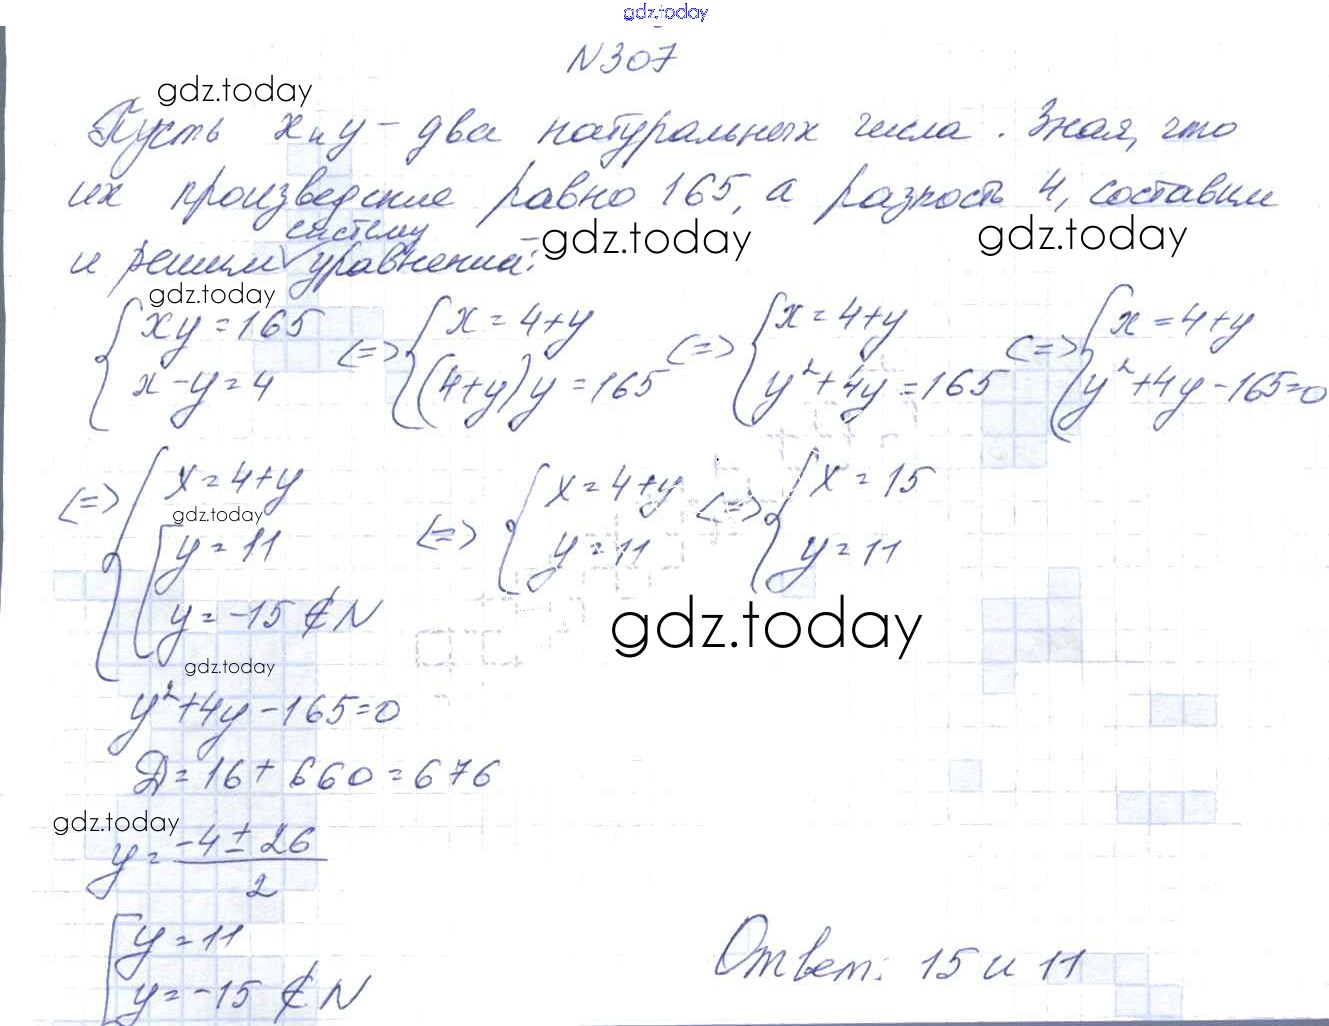 gdz.today
N307
gdz.today
Пусть x и y – два натуральных числа. Зная, что
их произведение равно 165, а разность 4, составим
и решим систему уравнений:
gdz.today
gdz.today
gdz.today
{ xy = 165
x - y = 4
<=> { x = 4 + y
(4+y)y = 165
<=> { x = 4 + y
y² + 4y = 165
<=> { x = 4 + y
y² + 4y - 165 = 0
<=> { x = 4 + y
gdz.today
[ y = 11
y = -15 ∉ N
<=> { x = 4 + y
y = 11
<=> { x = 15
y = 11
gdz.today
gdz.today
y² + 4y - 165 = 0
Д = 16 + 660 = 676
gdz.today
y = (-4 ± 26) / 2
[ y = 11
y = -15 ∉ N
Ответ: 15 и 11